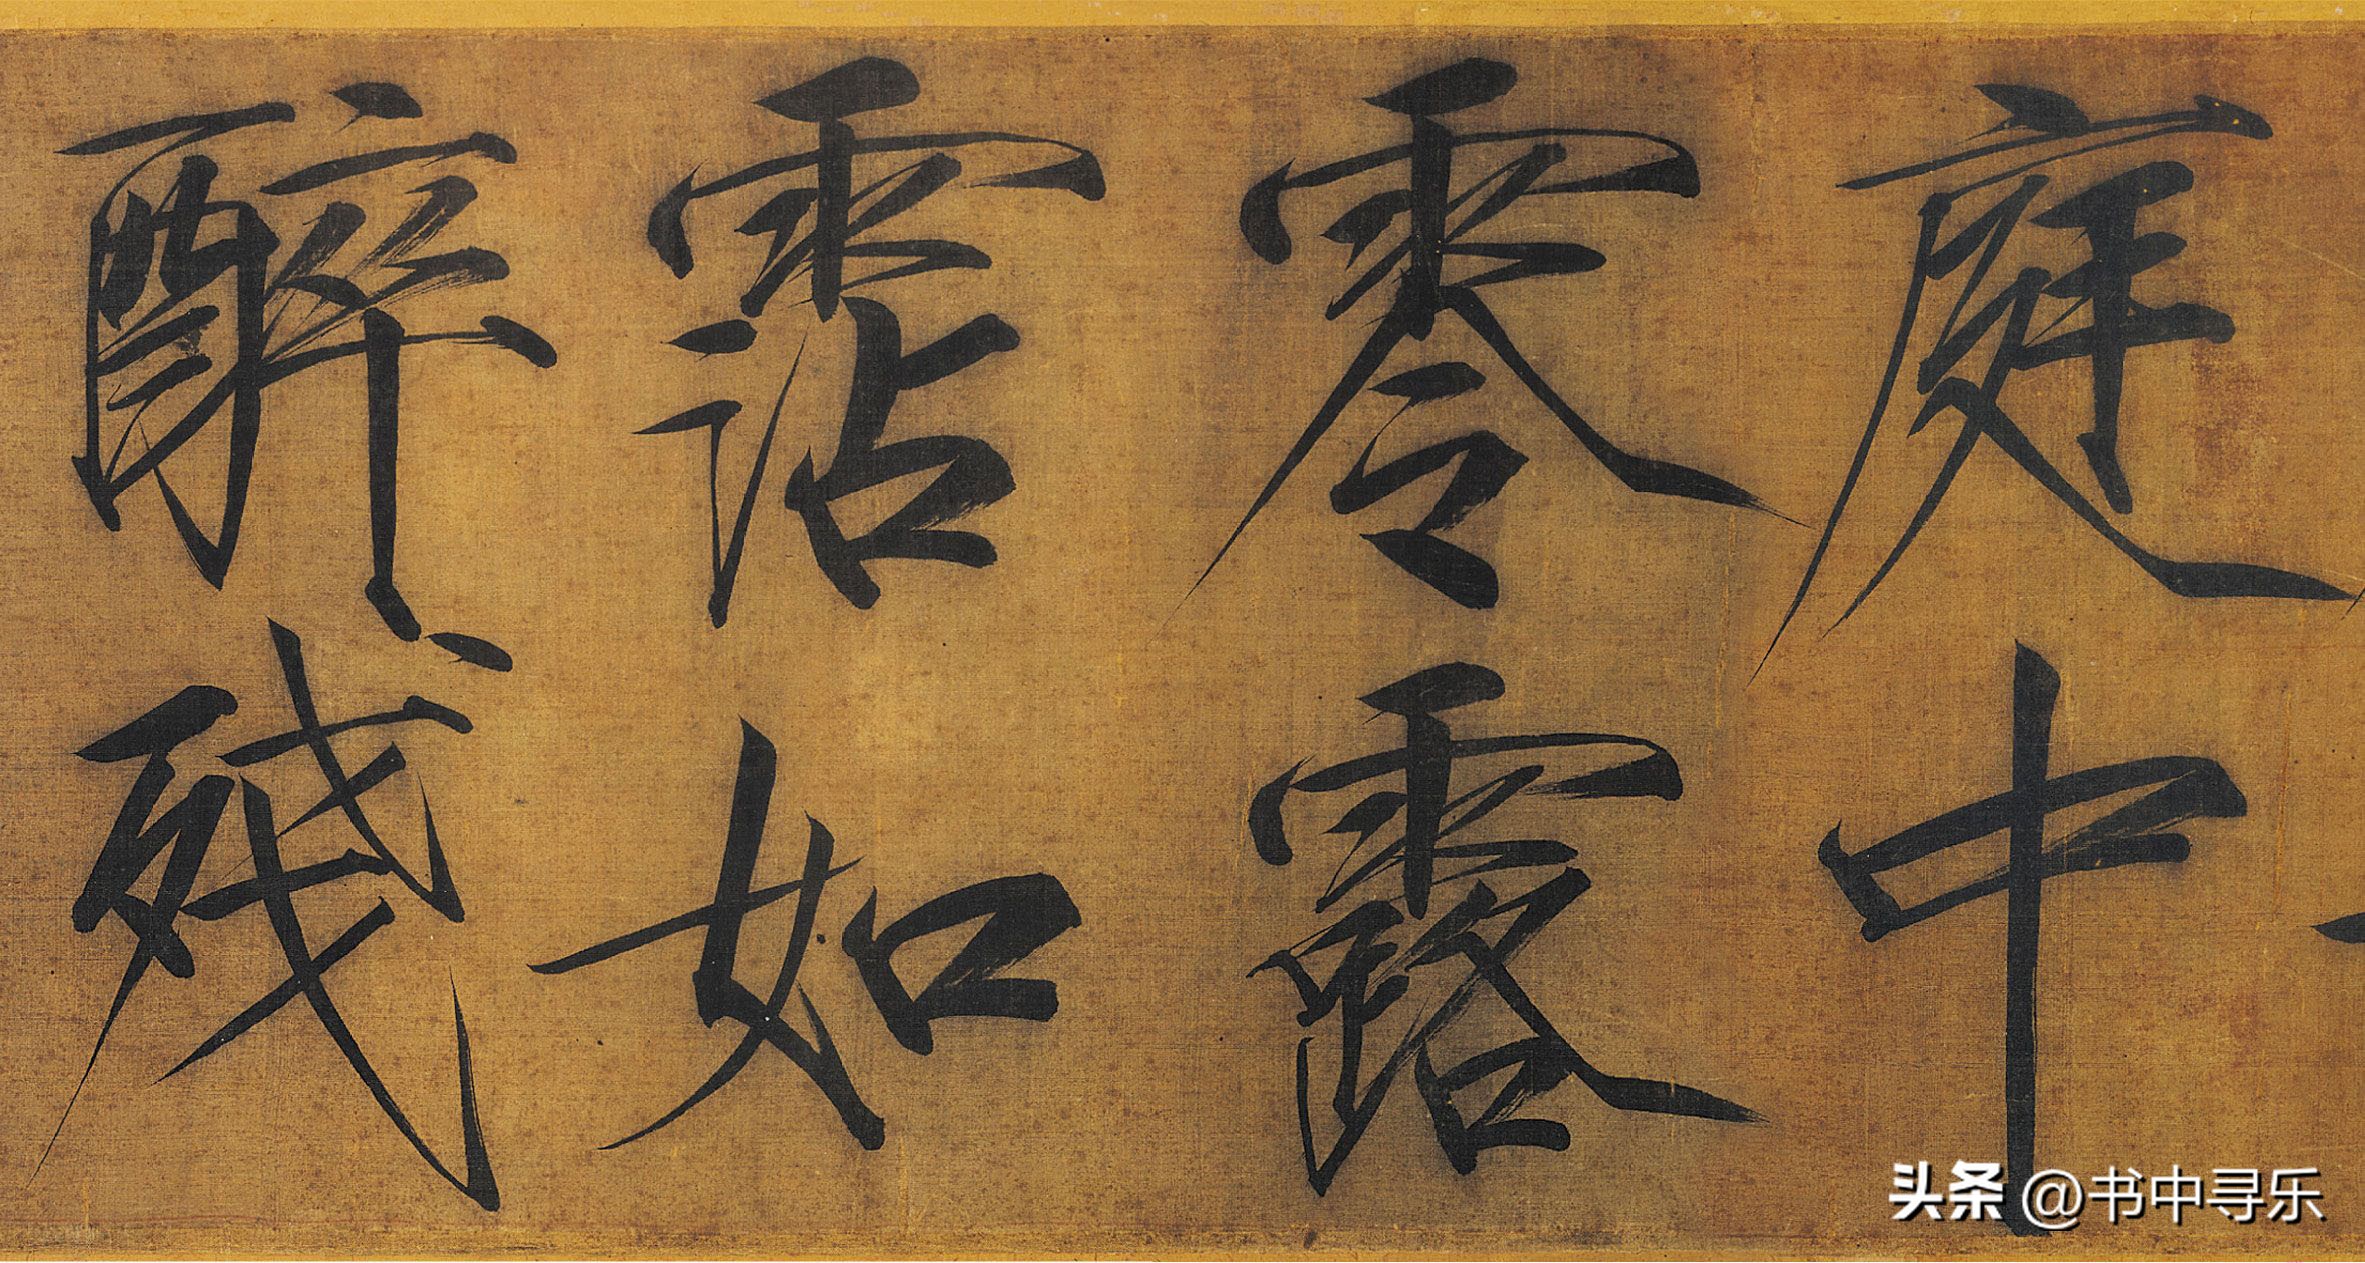 庭中
零露
霑如
醉殘
头条 @书中寻乐